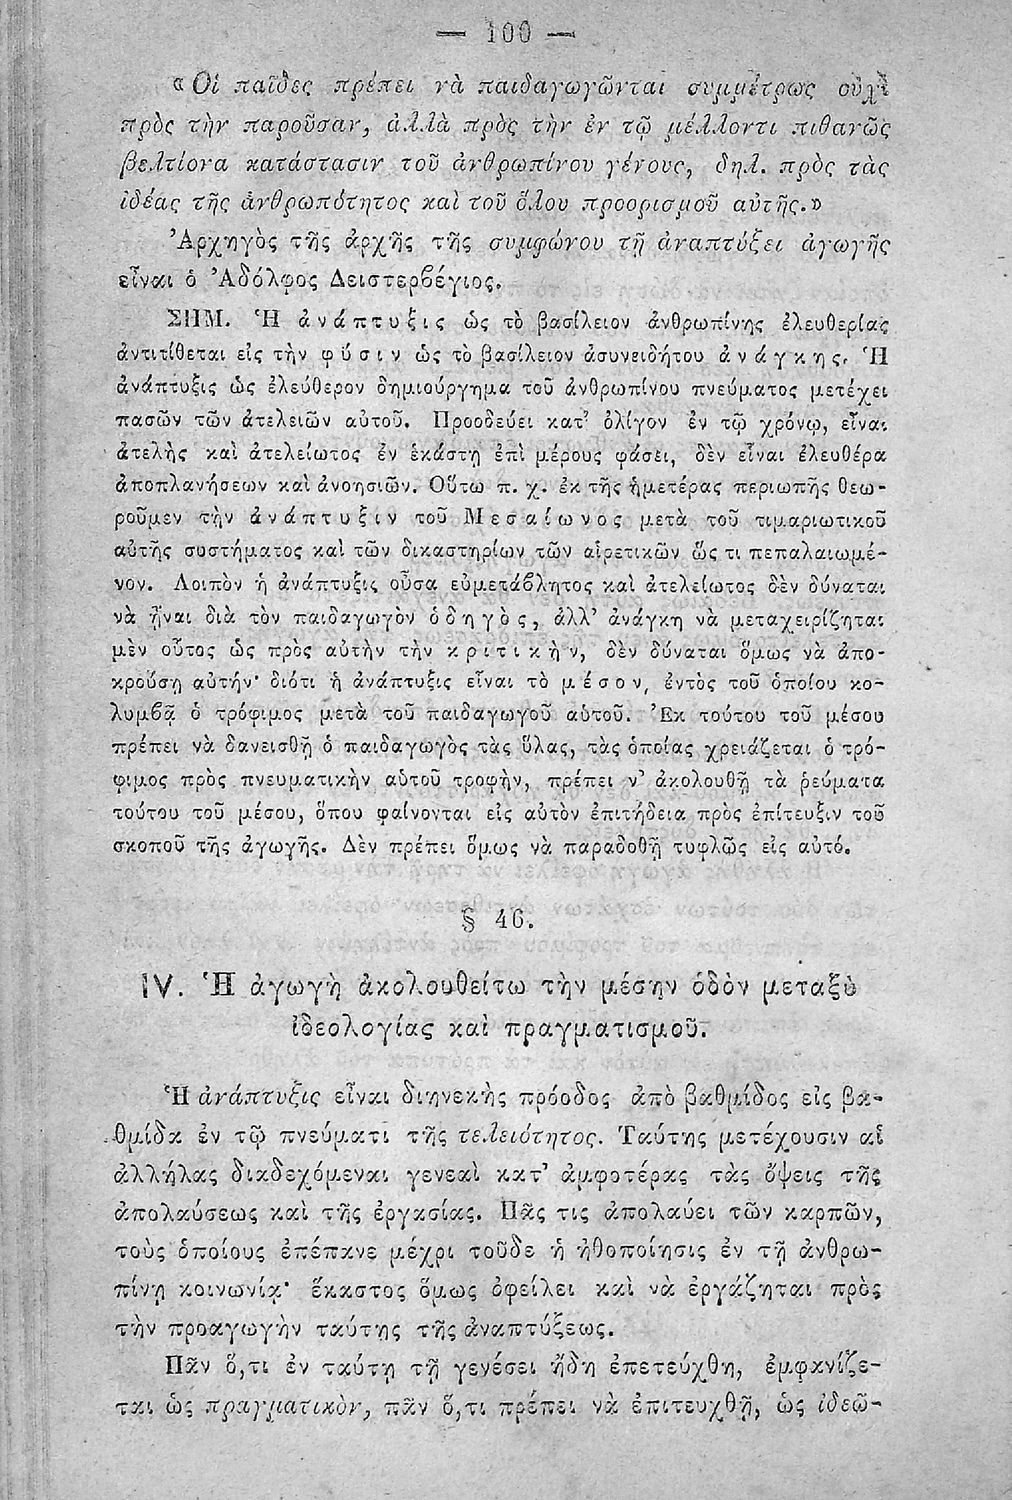 — 100 —
«Οἱ παῖδες πρέπει νὰ παιδαγωγῶνται συμμέτρως οὐχὶ
πρὸς τὴν παροῦσαν, ἀλλὰ πρὸς τὴν ἐν τῷ μέλλοντι πιθανῶς
βελτίονα κατάστασιν τοῦ ἀνθρωπίνου γένους, δηλ. πρὸς τὰς
ἰδέας τῆς ἀνθρωπότητος καὶ τοῦ ὅλου προορισμοῦ αὐτῆς.»
Ἀρχηγὸς τῆς ἀρχῆς τῆς συμφώνου τῇ ἀναπτύξει ἀγωγῆς
εἶναι ὁ Ἀδόλφος Δειστερβέγιος.
ΣΗΜ. Ἡ ἀνάπτυξις ὡς τὸ βασίλειον ἀνθρωπίνης ἐλευθερίας
ἀντιτίθεται εἰς τὴν φύσιν ὡς τὸ βασίλειον ἀσυνειδήτου ἀνάγκης. Ἡ
ἀνάπτυξις ὡς ἐλεύθερον δημιούργημα τοῦ ἀνθρωπίνου πνεύματος μετέχει
πασῶν τῶν ἀτελειῶν αὐτοῦ. Προοδεύει κατ’ ὀλίγον ἐν τῷ χρόνῳ, εἶναι
ἀτελὴς καὶ ἀτελείωτος ἐν ἑκάστῃ ἐπὶ μέρους φάσει, δὲν εἶναι ἐλευθέρα
ἀποπλανήσεων καὶ ἀνοησιῶν. Οὕτω π. χ. ἐκ τῆς ἡμετέρας περιωπῆς θεω-
ροῦμεν τὴν ἀνάπτυξιν τοῦ Μεσαίωνος μετὰ τοῦ τιμαριωτικοῦ
αὐτῆς συστήματος καὶ τῶν δικαστηρίων τῶν αἱρετικῶν ὥς τι πεπαλαιωμέ-
νον. Λοιπὸν ἡ ἀνάπτυξις οὖσα εὐμετάβλητος καὶ ἀτελείωτος δὲν δύναται
νὰ ᾖναι διὰ τὸν παιδαγωγὸν ὁδηγὸς, ἀλλ’ ἀνάγκη νὰ μεταχειρίζηται
μὲν οὗτος ὡς πρὸς αὐτὴν τὴν κριτικὴν, δὲν δύναται ὅμως νὰ ἀπο-
κρούσῃ αὐτήν· διότι ἡ ἀνάπτυξις εἶναι τὸ μέσον, ἐντὸς τοῦ ὁποίου κο-
λυμβᾷ ὁ τρόφιμος μετὰ τοῦ παιδαγωγοῦ αὑτοῦ. Ἐκ τούτου τοῦ μέσου
πρέπει νὰ δανεισθῇ ὁ παιδαγωγὸς τὰς ὕλας, τὰς ὁποίας χρειάζεται ὁ τρό-
φιμος πρὸς πνευματικὴν αὑτοῦ τροφὴν, πρέπει ν’ ἀκολουθῇ τὰ ῥεύματα
τούτου τοῦ μέσου, ὅπου φαίνονται εἰς αὐτὸν ἐπιτήδεια πρὸς ἐπίτευξιν τοῦ
σκοποῦ τῆς ἀγωγῆς. Δὲν πρέπει ὅμως νὰ παραδοθῇ τυφλῶς εἰς αὐτό.
§ 46.
IV. Ἡ ἀγωγὴ ἀκολουθείτω τὴν μέσην ὁδὸν μεταξὺ
ἰδεολογίας καὶ πραγματισμοῦ.
Ἡ ἀνάπτυξις εἶναι διηνεκὴς πρόοδος ἀπὸ βαθμίδος εἰς βα-
θμίδα ἐν τῷ πνεύματι τῆς τελειότητος. Ταύτης μετέχουσιν αἱ
ἀλλήλας διαδεχόμεναι γενεαὶ κατ’ ἀμφοτέρας τὰς ὄψεις τῆς
ἀπολαύσεως καὶ τῆς ἐργασίας. Πᾶς τις ἀπολαύει τῶν καρπῶν,
τοὺς ὁποίους ἐπέπανε μέχρι τοῦδε ἡ ἠθοποίησις ἐν τῇ ἀνθρω-
πίνῃ κοινωνίᾳ· ἕκαστος ὅμως ὀφείλει καὶ νὰ ἐργάζηται πρὸς
τὴν προαγωγὴν ταύτης τῆς ἀναπτύξεως.
Πᾶν ὅ,τι ἐν ταύτῃ τῇ γενέσει ἤδη ἐπετεύχθη, ἐμφανίζε-
ται ὡς πραγματικὸν, πᾶν ὅ,τι πρέπει νὰ ἐπιτευχθῇ, ὡς ἰδεῶ-